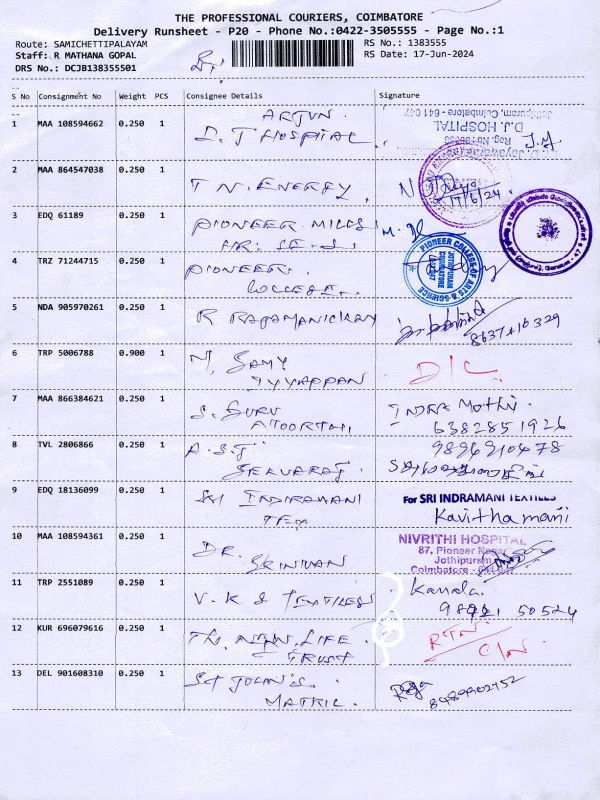 THE PROFESSIONAL COURIERS, COIMBATORE
Delivery Runsheet - P20 - Phone No.:0422-3505555 - Page No.:1
Route: SAMICHETTIPALAYAM
RS No.: 1383555
Staff: R MATHANA GOPAL
RS Date: 17-Jun-2024
DRS No.: DCJB138355501
S No Consignment No Weight PCS Consignee Details Signature
1 MAA 108594662 0.250 1 ARJUN
D. J HOSPITAL
Jothipuram, Coimbatore - 641 047
D.J. HOSPITAL
2 MAA 864547038 0.250 1 T N. ENERGY
17/6/24.
3 EDQ 61189 0.250 1 PIONEER MILLS
4 TRZ 71244715 0.250 1 PIONEER.
COLLEGE
PIONEER COLLEGE OF ARTS & SCIENCE
JOTHIPURAM
COIMBATORE
5 NDA 905970261 0.250 1 R RAJAMANICKAM
6 TRP 5006788 0.900 1 N. SAMY
IYYAPPAN
D/C
7 MAA 866384621 0.250 1 S. GURU
INDRA Mothi.
6382851926
8 TVL 2806866 0.250 1 A.S.T
SELVARAJ.
9894910478
9 EDQ 18136099 0.250 1 SRI INDIRAMANI
TEX
For SRI INDRAMANI TEXTILES
Kavithamani
10 MAA 108594361 0.250 1 DR.
NIVRITHI HOSPITAL
87, Pioneer Nagar
Jothipuram
Coimbatore - 641 047
11 TRP 2551089 0.250 1 V. K. S TEXTILES
Kamala.
50524
12 KUR 696079616 0.250 1 NEW LIFE
TRUST
RTN
C/N
13 DEL 901608310 0.250 1 ST JOHN'S
MATRIC.
Raja